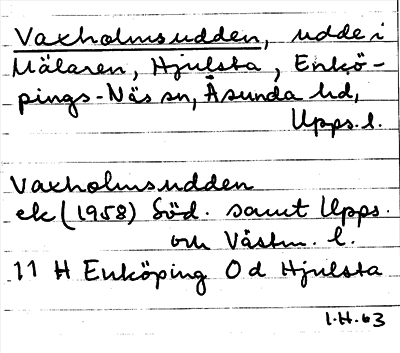 Vaxholmsudden, udde i
Mälaren, Hjulsta, Enkö-
pings-Näs sn, Åsunda hd,
Upps. l.
Vaxholmsudden
ek (1958) Söd. samt Upps.
och Västm. l.
11 H Enköping 0 d Hjulsta
I.H.63